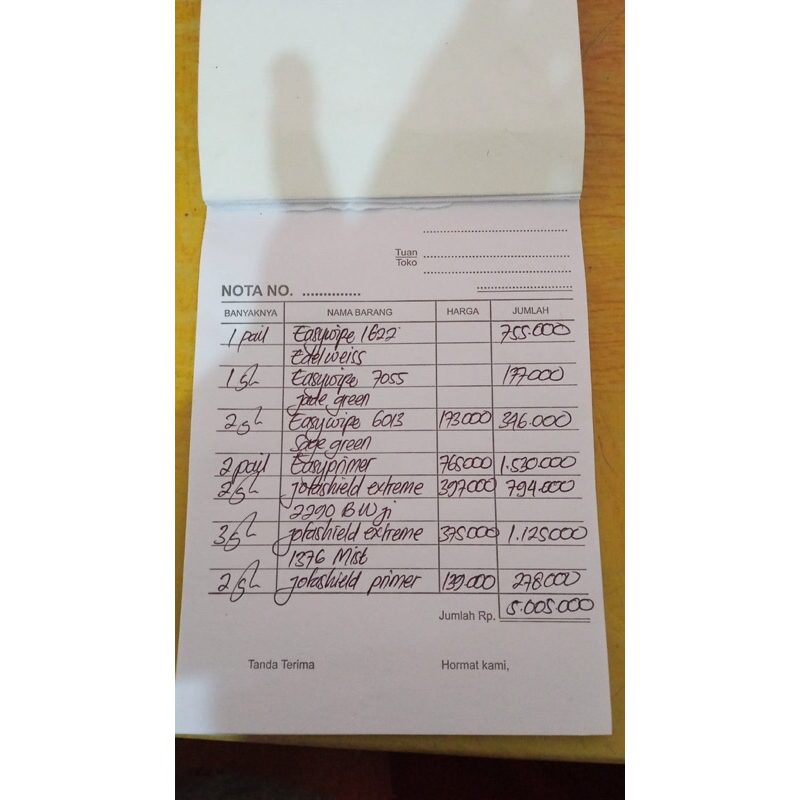 Tuan
Toko
NOTA NO. ..............
BANYAKNYA NAMA BARANG HARGA JUMLAH
1 pail Easywipe 1622 755.000
Edelweiss
1 gl Easywipe 7055 177000
jade green
2 gl Easywipe 6013 173000 346.000
Sage green
2 pail Easyprimer 765000 1.530.000
2 gl jotashield extreme 397000 794.000
2290 BW ji
3 gl jotashield extreme 375000 1.125000
1376 Mist
2 gl jotashield primer 139.000 278000
Jumlah Rp. 5.005.000
Tanda Terima Hormat kami,